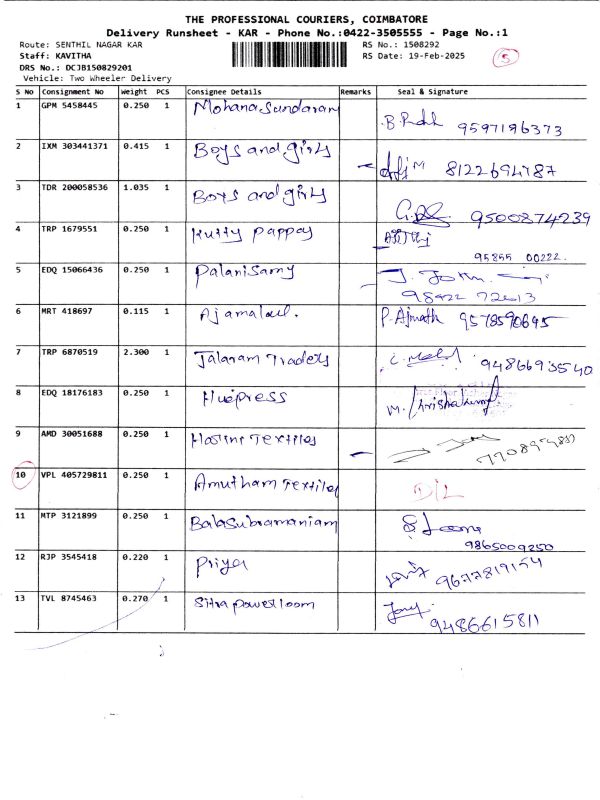 THE PROFESSIONAL COURIERS, COIMBATORE
Delivery Runsheet - KAR - Phone No.:0422-3505555 - Page No.:1
Route: SENTHIL NAGAR KAR RS No.: 1508292
Staff: KAVITHA RS Date: 19-Feb-2025 5
DRS No.: DCJB150829201
Vehicle: Two Wheeler Delivery
S No Consignment No Weight PCS Consignee Details Remarks Seal & Signature
1 GPM 5458445 0.250 1 Mohanasundaram
9597196373
2 IXM 303441371 0.415 1 Boys and girls
8122694787
3 TDR 200058536 1.035 1 Boys and girls
9500874239
4 TRP 1679551 0.250 1 Kutty pappay
95855 00222.
5 EDQ 15066436 0.250 1 Palanisamy
98422 72613
6 MRT 418697 0.115 1 Ajamalail. P. Ajmath 9578590645
7 TRP 6870519 2.300 1 Jalaram Traders
9486693540
8 EDQ 18176183 0.250 1 Huepress
9 AMD 30051688 0.250 1 Hasini Textiles
10 VPL 405729811 0.250 1 Amutham Textiles D/L
11 MTP 3121899 0.250 1 Balasubramaniam
9865009250
12 RJP 3545418 0.220 1 Priya
9677819154
13 TVL 8745463 0.270 1 Sitra powerloom
9486615811